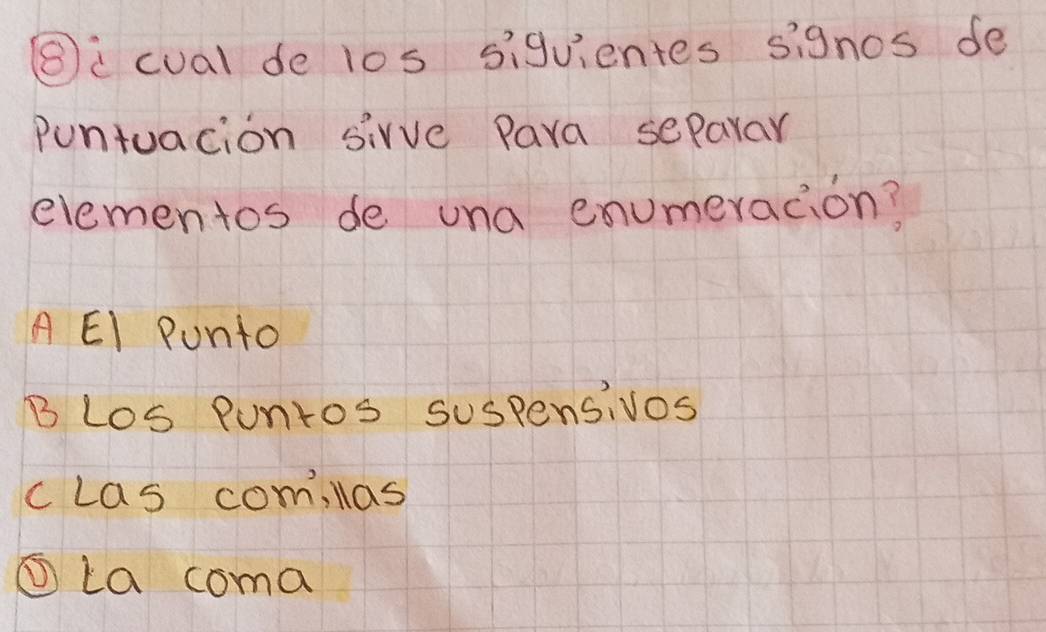 ⑧¿ cual de los siguientes signos de
Puntuación sirve Para separar
elementos de una enumeración?
A El Punto
B Los Puntos suspensivos
C Las comillas
Ⓓ La coma